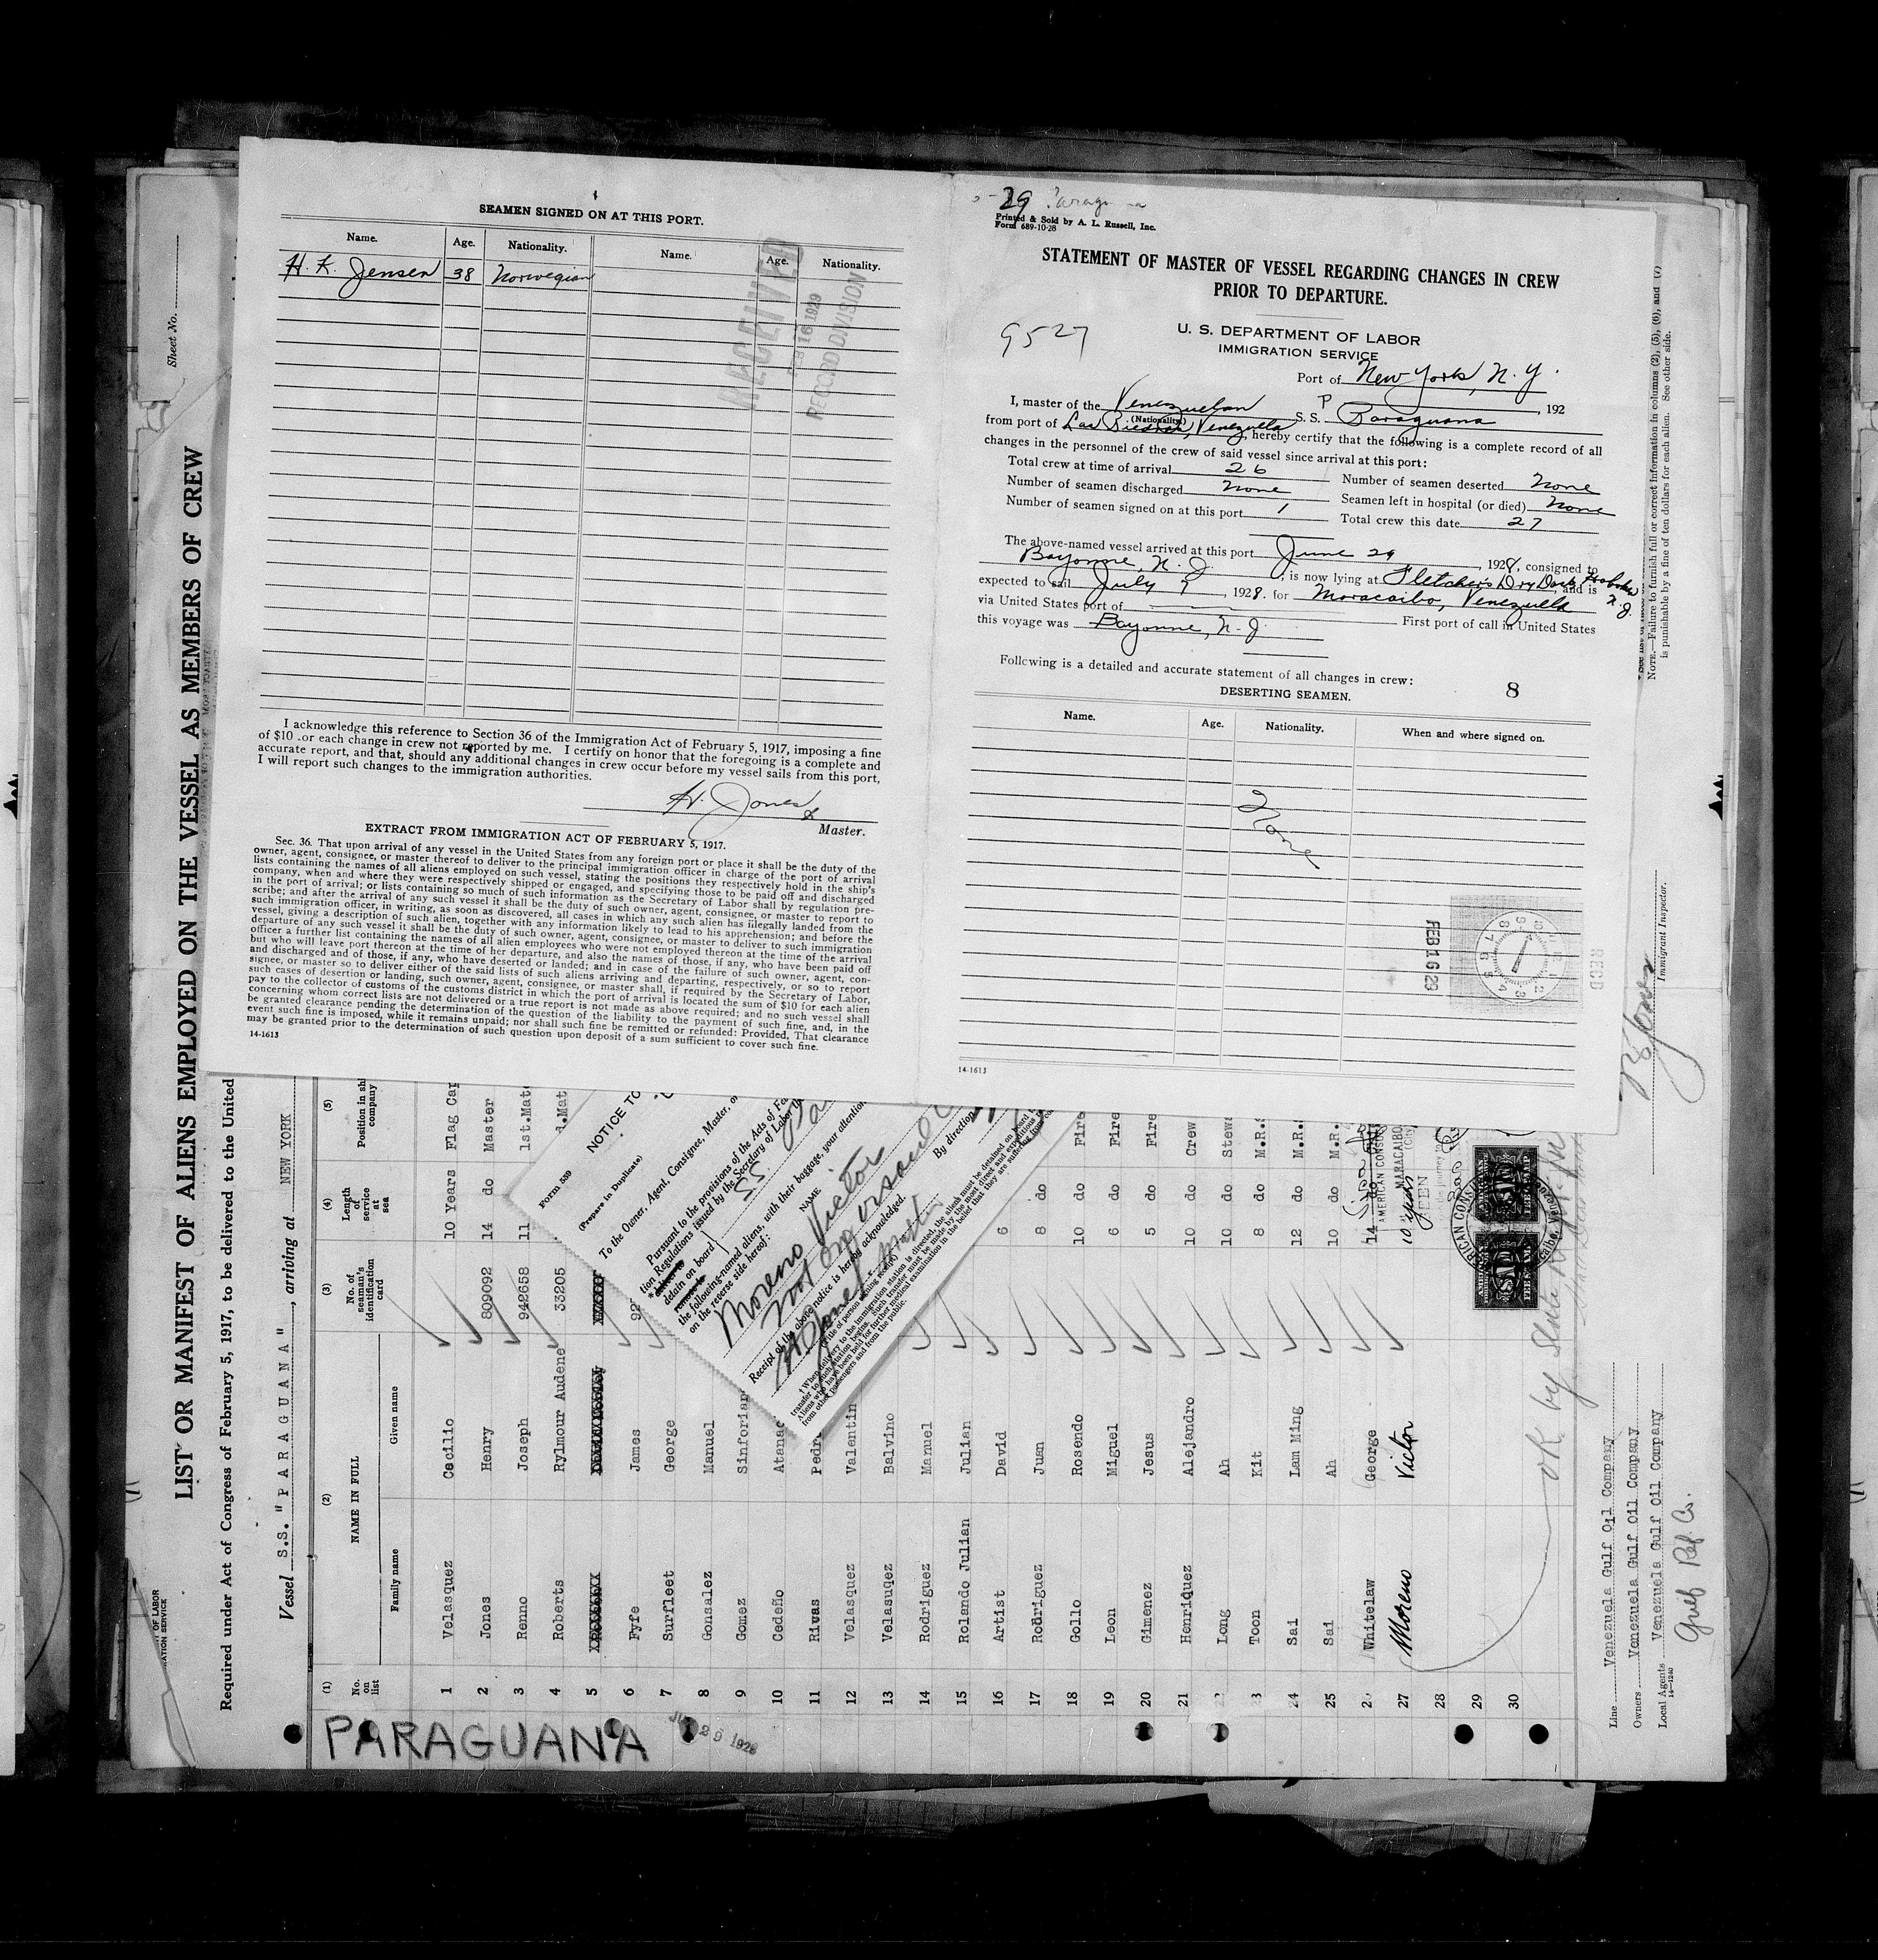 SEAMEN SIGNED ON AT THIS PORT.
Name. Age. Nationality. Name. Age. Nationality.
H. K. Jensen 38 Norwegian
RECEIVED
FEB 16 1929
RECORD DIVISION
I acknowledge this reference to Section 36 of the Immigration Act of February 5, 1917, imposing a fine
of $10 for each change in crew not reported by me. I certify on honor that the foregoing is a complete and
accurate report, and that, should any additional changes in crew occur before my vessel sails from this port,
I will report such changes to the immigration authorities.
H. Jones
Master.
EXTRACT FROM IMMIGRATION ACT OF FEBRUARY 5, 1917.
Sec. 36. That upon arrival of any vessel in the United States from any foreign port or place it shall be the duty of the
owner, agent, consignee, or master thereof to deliver to the principal immigration officer in charge of the port of arrival
lists containing the names of all aliens employed on such vessel, stating the positions they respectively hold in the ship's
company, when and where they were respectively shipped or engaged, and specifying those to be paid off and discharged
in the port of arrival; or lists containing so much of such information as the Secretary of Labor shall by regulation pre-
scribe; and after the arrival of any such vessel it shall be the duty of such owner, agent, consignee, or master to report to
such immigration officer, in writing, as soon as discovered, all cases in which any such alien has illegally landed from the
vessel, giving a description of such alien, together with any information likely to lead to his apprehension; and before the
departure of any such vessel it shall be the duty of such owner, agent, consignee, or master to deliver to such immigration
officer a further list containing the names of all alien employees who were not employed thereon at the time of the arrival
but who will leave port thereon at the time of her departure, and also the names of those, if any, who have been paid off
and discharged and of those, if any, who have deserted or landed; and in case of the failure of such owner, agent, con-
signee, or master so to deliver either of the said lists of such aliens arriving and departing, respectively, or so to report
such cases of desertion or landing, such owner, agent, consignee, or master shall, if required by the Secretary of Labor,
pay to the collector of customs of the customs district in which the port of arrival is located the sum of $10 for each alien
concerning whom correct lists are not delivered or a true report is not made as above required; and no such vessel shall
be granted clearance pending the determination of the question of the liability to the payment of such fine, and, in the
event such fine is imposed, while it remains unpaid; nor shall such fine be remitted or refunded: Provided, That clearance
may be granted prior to the determination of such question upon deposit of a sum sufficient to cover such fine.
14-1613
29
Printed & Sold by A. L. Russell, Inc.
Form 689-10-28
STATEMENT OF MASTER OF VESSEL REGARDING CHANGES IN CREW
PRIOR TO DEPARTURE.
9527
U. S. DEPARTMENT OF LABOR
IMMIGRATION SERVICE
Port of New York, N. Y.
, 192
I, master of the Venezuelan S. S. Paraguana
(Nationality)
from port of Las Piedras, Venezuela, hereby certify that the following is a complete record of all
changes in the personnel of the crew of said vessel since arrival at this port:
Total crew at time of arrival 26 Number of seamen deserted None
Number of seamen discharged None Seamen left in hospital (or died) None
Number of seamen signed on at this port 1 Total crew this date 27
The above-named vessel arrived at this port June 29, 1928, consigned to
Bayonne, N. J., is now lying at Fletcher's Dry Dock, Hoboken N. J., and is
expected to sail July 7, 1928. for Maracaibo, Venezuela
via United States port of First port of call in United States
this voyage was Bayonne, N. J.
Following is a detailed and accurate statement of all changes in crew:
8
DESERTING SEAMEN.
Name. Age. Nationality. When and where signed on.
None
FEB 16 29
REC'D
14-1613
Sheet No.
LIST OR MANIFEST OF ALIENS EMPLOYED ON THE VESSEL AS MEMBERS OF CREW
Required under Act of Congress of February 5, 1917, to be delivered to the United
Vessel S.S. "PARAGUANA", arriving at NEW YORK
(1) (2) (3) (4) (5)
No. on list NAME IN FULL No. of seaman's identification card Length of service at sea Position in ship's company
Family name Given name
1 Velasquez Cecilio 10 Years Flag Cap
2 Jones Henry 809092 14 do Master
3 Renno Joseph 942658 11 1st.Mate
4 Roberts Rylmour Audene 33205 d.Mat
5
6 Fyfe James 92
7 Surfleet George
8 Gonsalez Manuel
9 Gomez Sinforian
10 Cedeño Atanac
11 Rivas Pedro
12 Velasquez Valentin
13 Velasuqez Balvino
14 Rodriguez Manuel
15 Rolando Julian Julian
16 Artist David 6
17 Rodriguez Juan 8 do
18 Gollo Rosendo 10 do Fire
19 Leon Miguel 6 do Fire
20 Gimenez Jesus 5 do Fire
21 Henriquez Alejandro 10 do Crew
22 Long Ah 10 do Stew
23 Toon Kit 8 do M.R.
24 Sai Lam Ming 12 do M.R.
25 Sai Ah 10 do M.R.
26 Whitelaw George 14 do
27 Moreno Victor 10 years
28
29
30
PARAGUANA
JUN 29 1928
AMERICAN CONSUL
MARACAIBO
(City)
SEEN
OK by
Line Venezuela Gulf Oil Company
Owners Venezuela Gulf Oil Company.
Local Agents Venezuela Gulf Oil Company
14-1240
Gulf Ref. Co.
NOTE.—Failure to furnish full or correct information in columns (2), (5), (6), and (7)
is punishable by a fine of ten dollars for each alien. See other side.
Immigrant Inspector.
H Jones
Form 539
NOTICE TO
(Prepare in Duplicate)
To the Owner, Agent, Consignee, Master, or
Pursuant to the provisions of the Acts of
tion Regulations issued by the Secretary of Labor
detain on board SS
the following-named aliens, with their baggage, your attention
on the reverse side hereof:
NAME
Moreno Victor
By direction
Receipt of the above notice is hereby acknowledged.
H Jones Master
(Title of person signing receipt)